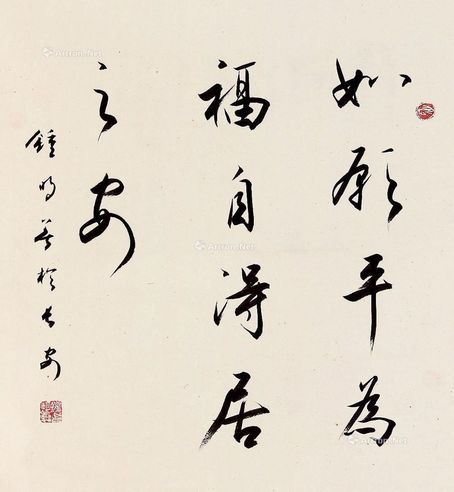 如願平為
福自得居
之安
鍾明善於長安
Artron.Net
Artron.Net
Artron.Net